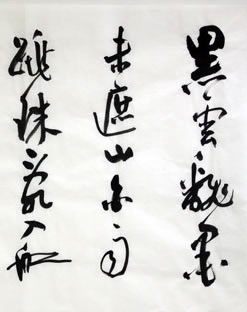 黑雲翻墨
未遮山白雨
跳珠亂入船